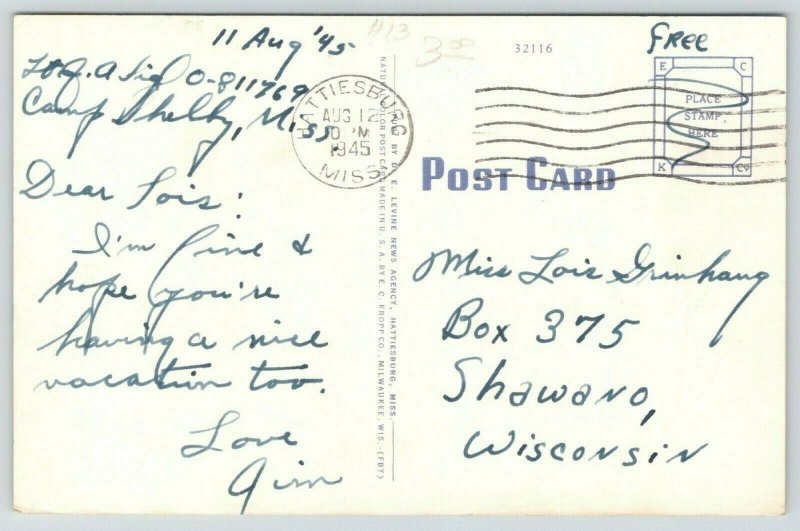 11 Aug '45
#13
3.00
32116
FREE
O-811769
Camp Shelby, Miss.
HATTIESBURG
AUG 12
M
1945
MISS.
E C
PLACE
STAMP
HERE
K Co
POST CARD
BY D. E. LEVINE NEWS AGENCY, HATTIESBURG, MISS.
COLOR POST CARD MADE IN U.S.A. BY E. C. KROPP CO., MILWAUKEE, WIS. (FBY)
Dear Lois:
I'm fine &
hope you're
having a nice
vacation too.
Love
Jim
Miss Lois
Box 375
Shawano,
Wisconsin